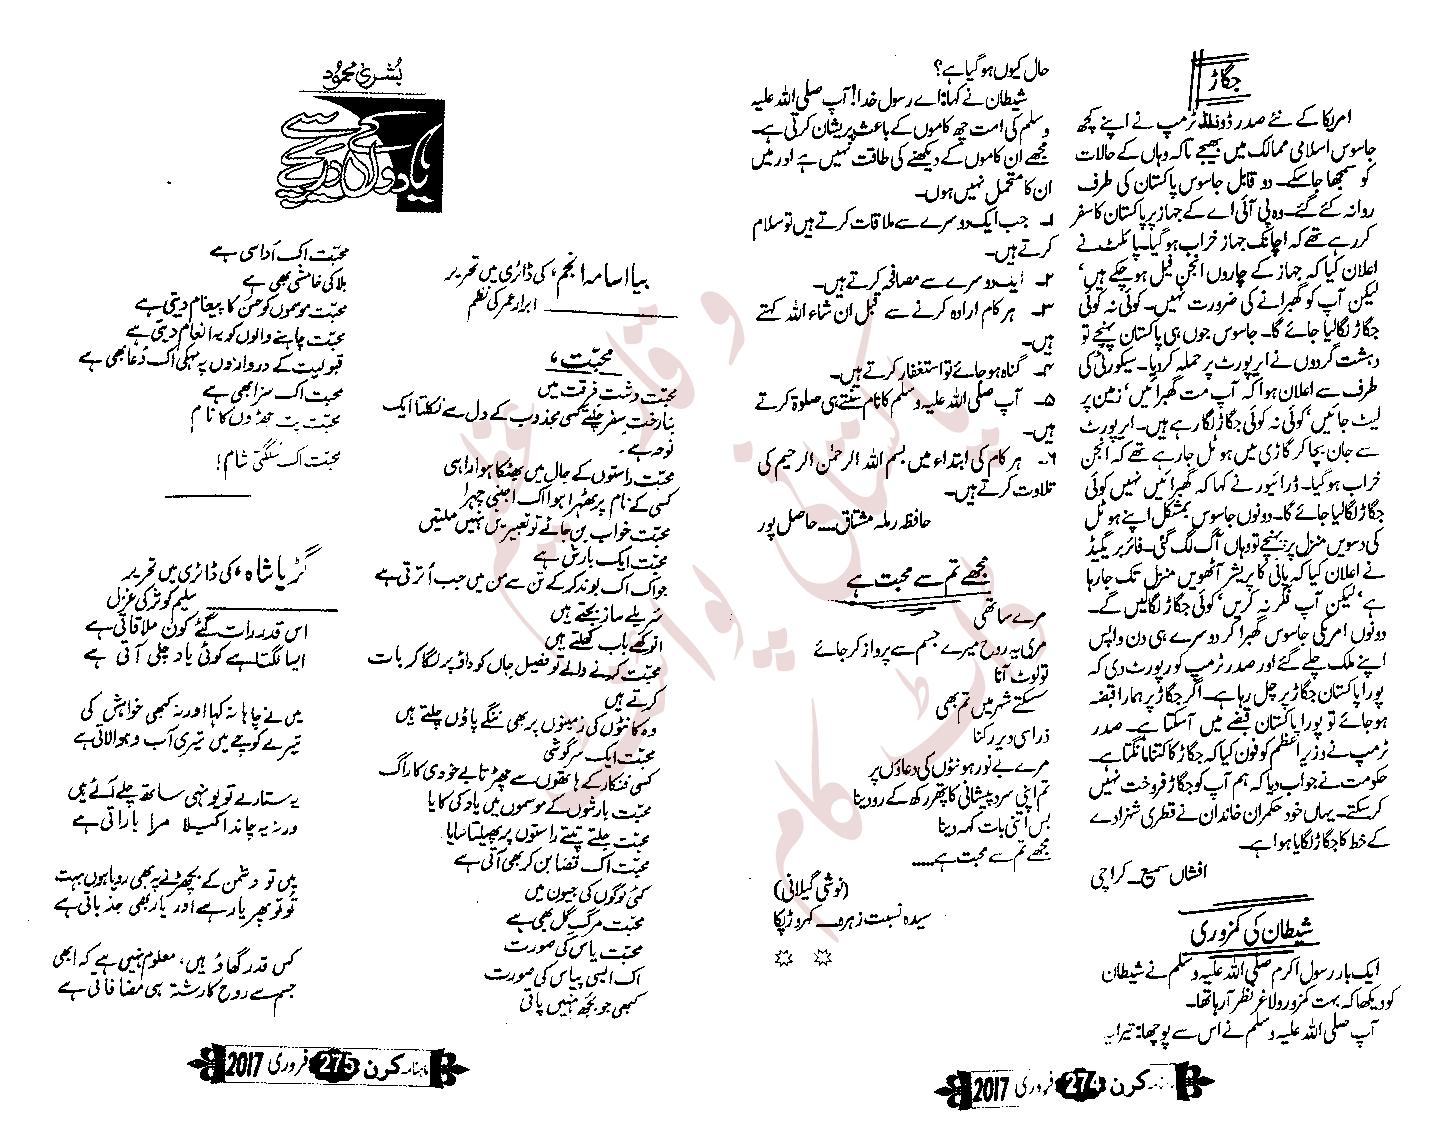 جگاڑ
امریکا کے نئے صدر ڈونلڈ ٹرمپ نے اپنے کچھ
جاسوس اسلامی ممالک میں بھیجے تاکہ وہاں کے حالات
کو سمجھا جاسکے۔ دو قابل جاسوس پاکستان کی طرف
روانہ کئے گئے۔ وہ پی آئی اے کے جہاز پر پاکستان کا سفر
کررہے تھے کہ اچانک جہاز خراب ہوگیا۔ پائلٹ نے
اعلان کیا کہ جہاز کے چاروں انجن فیل ہوچکے ہیں‘
لیکن آپ کو گھبرانے کی ضرورت نہیں۔ کوئی نہ کوئی
جگاڑ لگالیا جائے گا۔ جاسوس جوں ہی پاکستان پہنچے تو
دہشت گردوں نے ایرپورٹ پر حملہ کردیا۔ سیکورٹی کی
طرف سے اعلان ہوا کہ آپ مت گھبرائیں‘ زمین پر
لیٹ جائیں‘ کوئی نہ کوئی جگاڑ لگارہے ہیں۔ ایرپورٹ
سے جان بچا کر گاڑی میں ہوٹل جارہے تھے کہ انجن
خراب ہوگیا۔ ڈرائیور نے کہا کہ گھبرائیں نہیں کوئی
جگاڑ لگالیا جائے گا۔ دونوں جاسوس بمشکل اپنے ہوٹل
کی دسویں منزل پر پہنچے تو وہاں آگ لگ گئی۔ فائر بریگیڈ
نے اعلان کیا کہ پانی کا پریشر آٹھویں منزل تک جارہا
ہے‘ لیکن آپ فکر نہ کریں‘ کوئی جگاڑ لگالیں گے۔
دونوں امریکی جاسوس گھبرا کر دوسرے ہی دن واپس
اپنے ملک چلے گئے اور صدر ٹرمپ کو رپورٹ دی کہ
پورا پاکستان جگاڑ پر چل رہا ہے۔ اگر جگاڑ پر ہمارا قبضہ
ہوجائے تو پورا پاکستان قبضے میں آسکتا ہے۔ صدر
ٹرمپ نے وزیراعظم کو فون کیا کہ جگاڑ کا کتنا مانگتا ہے۔
حکومت نے جواب دیا کہ ہم آپ کو جگاڑ فروخت نہیں
کرسکتے۔ یہاں خود حکمران خاندان نے قطری شہزادے
کے خط کا جگاڑ لگایا ہوا ہے۔
افشاں سمیع۔ کراچی
شیطان کی کمزوری
ایک بار رسول اکرم صلی اللہ علیہ وسلم نے شیطان
کو دیکھا کہ بہت کمزور ولاغر نظر آرہا تھا۔
آپ صلی اللہ علیہ وسلم نے اس سے پوچھا: تیرا یہ
حال کیوں ہوگیا ہے؟
شیطان نے کہا: اے رسول خدا! آپ صلی اللہ علیہ
وسلم کی امت چھ کاموں کے باعث پریشان کرتی ہے۔
مجھے ان کاموں کے دیکھنے کی طاقت نہیں ہے اور میں
ان کا متحمل نہیں ہوں۔
۱۔ جب ایک دوسرے سے ملاقات کرتے ہیں تو سلام
کرتے ہیں۔
۲۔ ایک دوسرے سے مصافحہ کرتے ہیں۔
۳۔ ہر کام ارادہ کرنے سے قبل ان شاء اللہ کہتے
ہیں۔
۴۔ گناہ ہوجائے تو استغفار کرتے ہیں۔
۵۔ آپ صلی اللہ علیہ وسلم کا نام سنتے ہی صلوۃ کرتے
ہیں۔
۶۔ ہر کام کی ابتداء میں بسم اللہ الرحمٰن الرحیم کی
تلاوت کرتے ہیں۔
حافظہ رملہ مشتاق۔۔۔ حاصل پور
مجھے تم سے محبت ہے
مرے ساتھی
مری یہ روح میرے جسم سے پرواز کرجائے
تو لوٹ آنا
سسکتے شہر میں تم بھی
ذرا سی دیر رکنا
مرے بے نور ہونٹوں کی دعاؤں پر
تم اپنی سرد پیشانی کا پتھر رکھ کے رو دینا
بس اتنی بات کہہ دینا
مجھے تم سے محبت ہے۔۔۔۔
(نوشی گیلانی)
سیدہ نسبت زہرہ۔ کہروڑ پکا
ماہنامہ کرن 274 فروری 2017
بشریٰ محمود
یادوں کے دریچے سے
بیا اسامہ انجم، کی ڈائری میں تحریر
ابرار عمر کی نظم
محبت،
محبت دشت فرقت میں
بنا رخت سفر چلتے کسی مجذوب کے دل سے نکلتا ایک
نوحہ ہے۔
محبت راستوں کے جال میں بھٹکا ہوا راہی
کسی کے نام پر ٹھہرا ہوا اک اجنبی چہرا
محبت خواب بن جانے تو تعبیریں نہیں ملتیں
محبت ایک بارش ہے
جو اک اک بوند کرکے تن سے من میں جب اُترتی ہے
سریلے ساز بجتے ہیں
انوکھے باب کھلتے ہیں
محبت کرنے والے تو فصیل جاں کو داؤ پر لگا کر بات
کرتے ہیں
وہ کانٹوں کی زمینوں پر بھی ننگے پاؤں چلتے ہیں
محبت ایک سرگوشی
کسی فنکار کے ہاتھوں سے چھڑتا بے خودی کا راگ
محبت بارشوں کے موسموں میں یاد کی کایا
محبت جلتے تپتے راستوں پر پھیلتا سایا
محبت اک قضا بن کر بھی آتی ہے
کئی لوگوں کی جیون میں
محبت مرگ گل بھی ہے
محبت یاس کی صورت
اک ایسی پیاس کی صورت
کبھی جو بجھ نہیں پاتی
محبت اک اُداسی ہے
بلا کی خامشی بھی ہے
محبت موسموں کو حسن کا پیغام دیتی ہے
محبت چاہنے والوں کو یہ انعام دیتی ہے
قبولیت کے دروازوں پہ پہلی اک دُعا بھی ہے
محبت اک سزا بھی ہے
محبت پت جھڑوں کا نام
محبت اک سلگتی شام!
گڑیا شاہ، کی ڈائری میں تحریر
سلیم کوثر کی غزل
اس قدر رات گئے کون ملاقاتی ہے
ایسا لگتا ہے کوئی یاد چلی آتی ہے
میں نے چاہا نہ کہا اور نہ کبھی خواہش کی
تیرے کوچے میں تیری آب و ہوا لاتی ہے
یہ ستارے تو یونہی ساتھ چلے آئے ہیں
ورنہ یہ چاند اکیلا مرا باراتی ہے
میں تو دشمن کے بچھڑنے پہ بھی رویا ہوں بہت
تو تو پھر یار ہے اور یار بھی جذباتی ہے
کس قدر گھاؤ ہیں، معلوم نہیں ہے کہ ابھی
جسم سے روح کا رشتہ ہی مضافاتی ہے
ماہنامہ کرن 275 فروری 2017